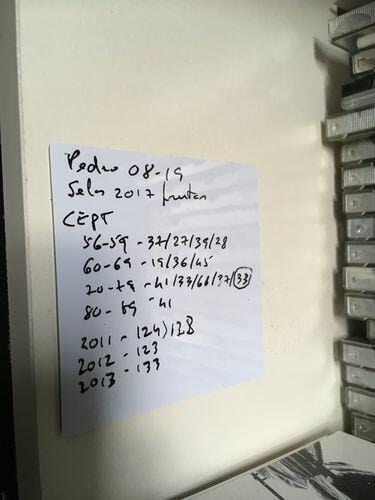 Pedro 08-19
Selos 2017 frutas
CEPT
56-59 - 37/27/39/28
60-69 - 19/36/45
70-79 - 41/37/68/37/33
80-89 - 41
2011 - 124)128
2012 - 123
2013 - 133